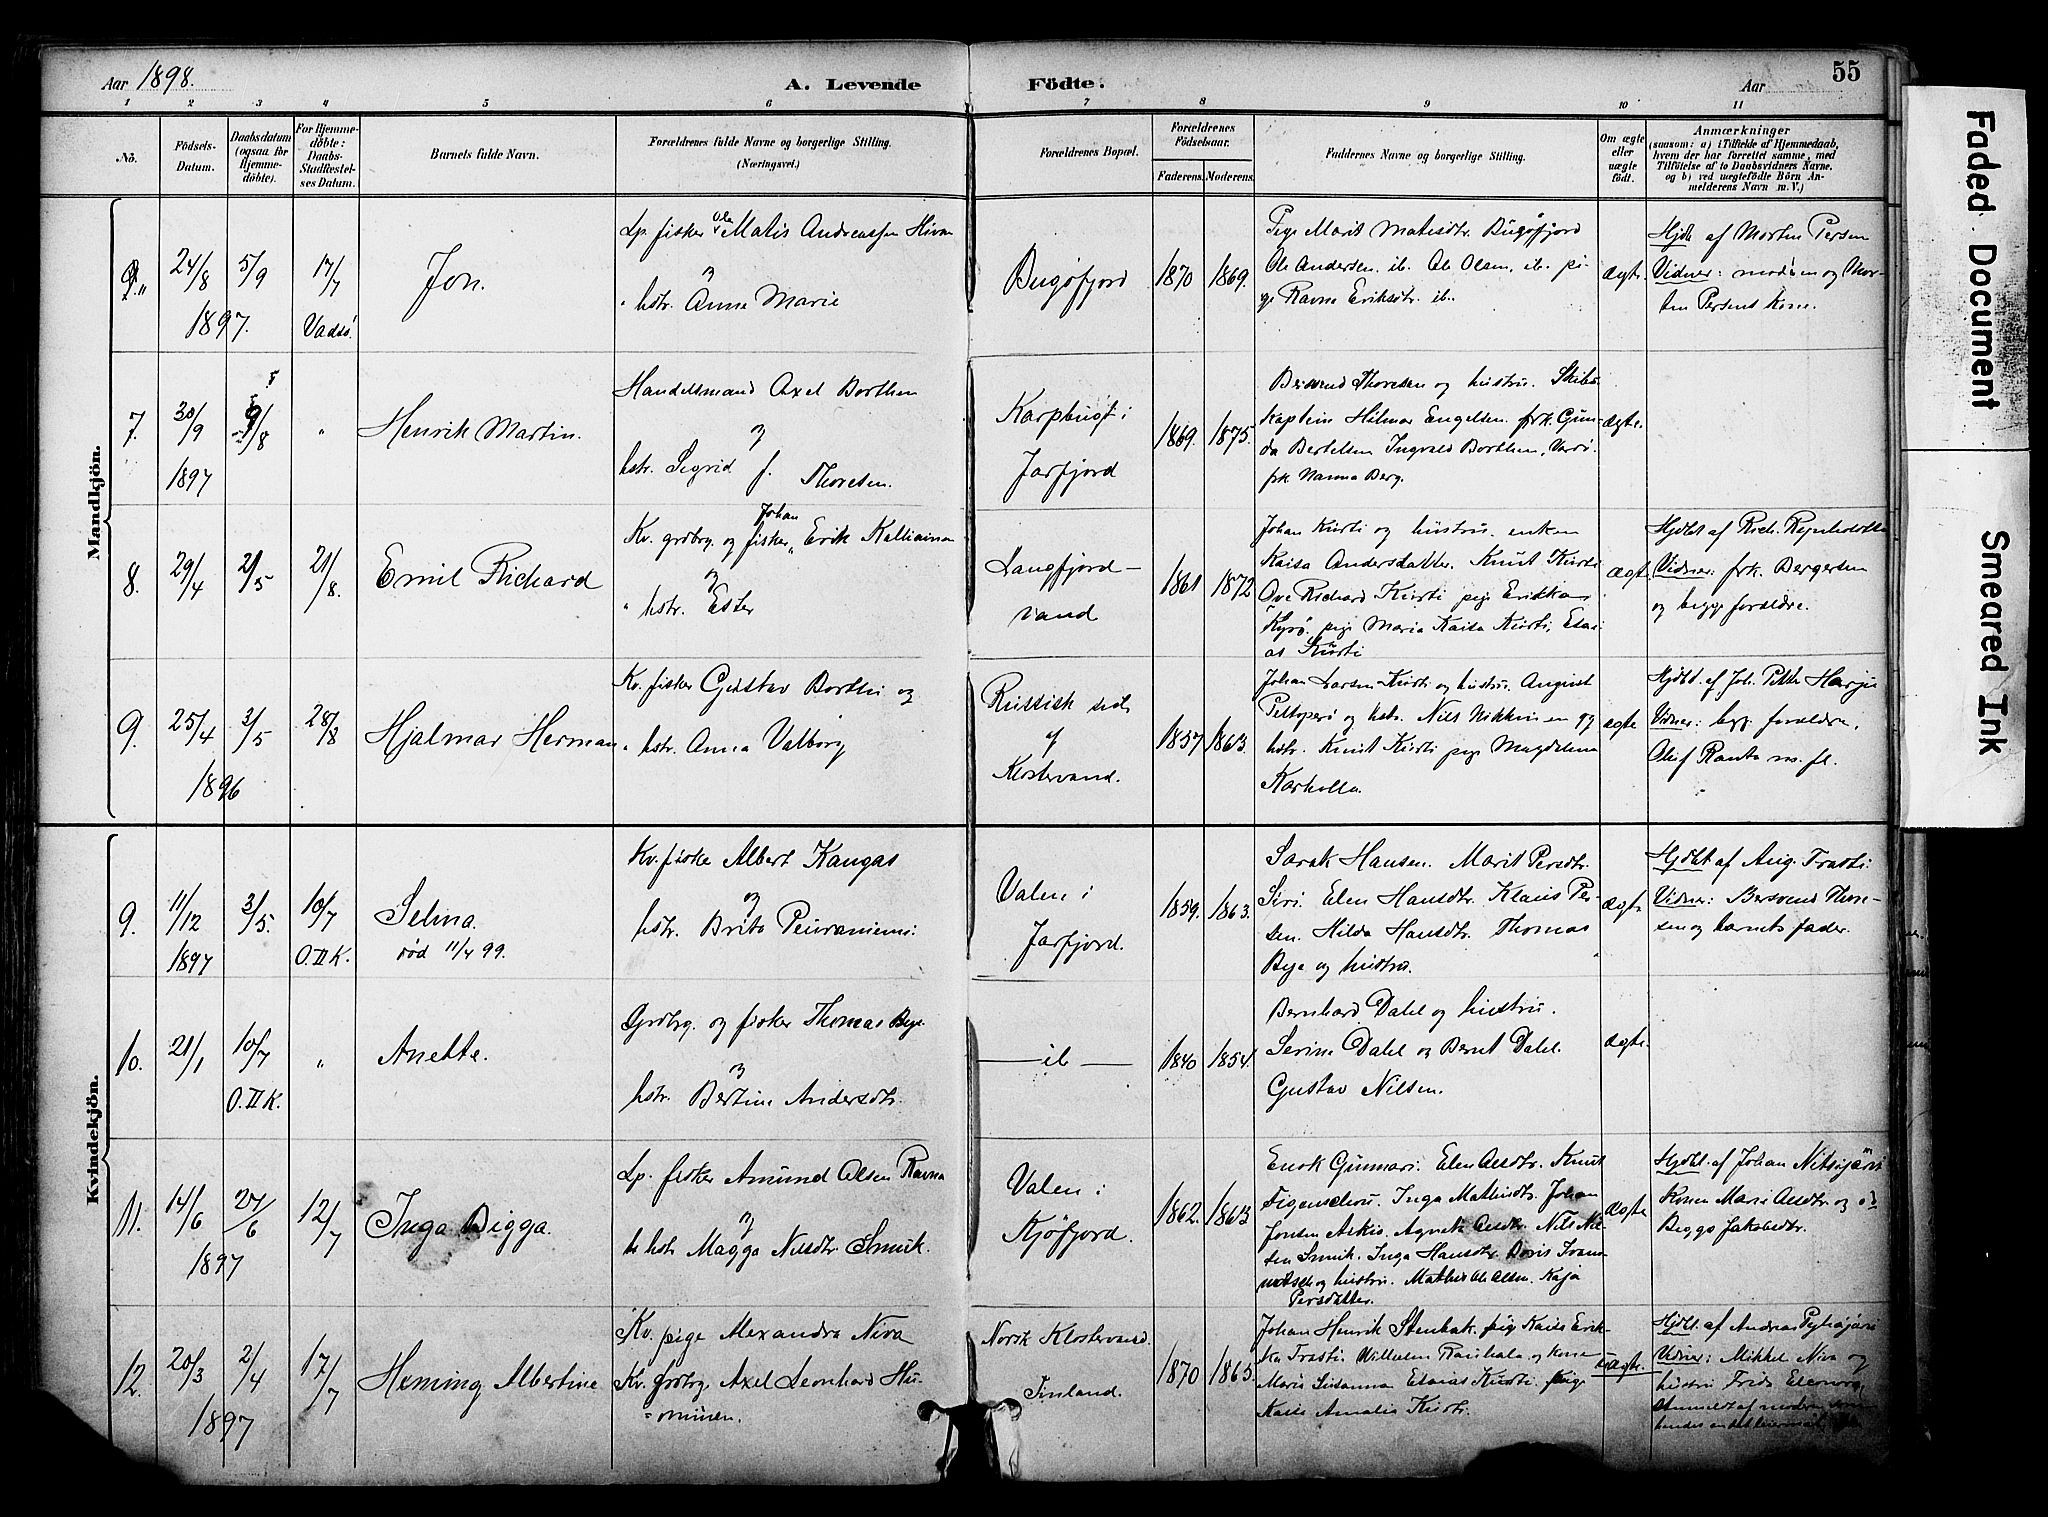 Aar 1898.
A. Levende Födte.
Aar
55
1 2 3 4 5 6 7 8 9 10 11
No.
Födsels-
Datum.
Daabsdatum
(ogsaa for
Hjemme-
döbte).
For Hjemme-
döbte:
Daabs-
Stadfæstel-
ses Datum.
Barnets fulde Navn.
Forældrenes fulde Navne og borgerlige Stilling.
(Næringsvei.)
Forældrenes Bopæl.
Forældrenes
Födselsaar.
Faderens. Moderens.
Faddernes Navne og borgerlige Stilling.
Om ægte
eller
uægte
födt.
Anmærkninger
(saasom: a) i Tilfælde af Hjemmedaab,
hvem der har forrettet samme, med
Tilföielse af to Daabsvidners Navne,
og b) ved uegtefödte Börn An-
melderens Navn m. V.)
Mandkjön.
24/8 1897.
5/9
17/7 Vadsø.
Jon.
Lp. fisker Ole Matis Andreassen
og
hstr. Anna Marie
Bugøfjord
1870 1869.
Pige Marit Matisdtr. Bugøfjord
Ole Andersen. ib. Ole Olsen, ib. pi-
ge Ravne Eriksdtr. ib.
ægte.
Hjdb. af Morten Persen
Vidner: moderen og Mor-
ten Persens Kone.
7.
30/9 1897
"
Henrik Martin.
Handelsmand Axel Borthen
og
hstr. Sigrid f. Thoresen.
Karpbugt i
Jarfjord
1869. 1875.
Thoresen og hustru. Skibs-
kaptein Hilmar Engelsen. frk. Gun-
da Bertelsen Ingvald Borthen, Vardø.
frk Nanna Berg.
ægte.
8.
29/4
2/5
21/8.
Emil Richard
Kv. grdbr. og fisker Johan Erik
og
" hstr. Ester
Langfjord-
vand
1861 1872
Johan Kurti og hustru. enken
Kaisa Andersdatter. Knut Kurti
Ove Richard Kurti pige Erikka
Kyrø. pige Maria Kaisa Kurti, Esai-
as Kurti
ægte.
Hjdbt af Rich.
Vidner: frk. Bergersen
og begge forældre.
9.
25/4 1896
3/5
28/8
Hjalmar Herman
Kv. fisker Gustav og
" hstr. Anna Valborg
Russisk side
af
Klostervand.
1857 1863.
Johan Larsen Kurti og hustru. August
og hstr. Nils og
hstr. Knut Kurti pige Magdalena
ægte
Hjdbt. af Joh. Petter Harju
Vidner: begge forældre,
Olaf Ranta m. fl.
Kvindekjön.
9.
11/12 1897
3/5.
10/7 O.II K.
Selma.
død 11/4 99.
Kv. fisker Albert Kangas
og
hstr. Brita Peuraniemi.
Valen i
Jarfjord.
1859. 1863.
Sarak Hansen. Marit Persdtr.
Siri. Elen Hansdtr. Klaus Per-
sen. Hilda Hansdtr. Thomas
Beye og hustru.
ægte
Hjdbt af Aug. Trasti.
Vidner: Thore-
sen og barnets fader.
10.
21/1
10/7 O.II K.
"
Anette.
Grdbrg. og fisker Thomas Beye
og
hstr. Bertine Andersdtr.
— ib —
1840 1854.
Bernhard Dahl og hustru.
Serine Dahl og Bernt Dahl.
Gustav Nilsen.
ægte.
11.
14/6 1897
27/6
12/7
Inga Bigga.
Lp. fisker Amund Olsen Ravna
og
hstr Magga Nilsdtr Smuk.
Valen i
Kjøfjord.
1862. 1863
Enok Elen Olsdtr. Knut
Figenschou. Inga Johan
Jonsen Agneta Olsdtr. Nils Nil-
sen Smuk. Inga Hansdtr. Boris
og hustru. Olsen. Kaja
Persdatter.
ægte
Hjdbt. af Johan
Konen Marie Olsdtr. og
Jakobsdtr.
12.
20/3 1897
2/4
17/7
Heming Albertine
Kv. pige Alexandra Niva
Kv. grdbrg. Axel Leonhard Hu-
=ominen.
Norsk Klostervand.
Finland.
1870 1865.
Johan Henrik Stenbak. pige Kaisa Erik-
ka Trasti. Wilhelm Rauhala og kone
Maria Susanna Esaias Kurti. pige
Kaisa Amalia Kurti.
uægte.
Hjdbt. af Andreas
Vidner: Mikkel Niva og
hustru Frida Eleonora.
Anmeldt af moderen
Faded Document
Smeared Ink